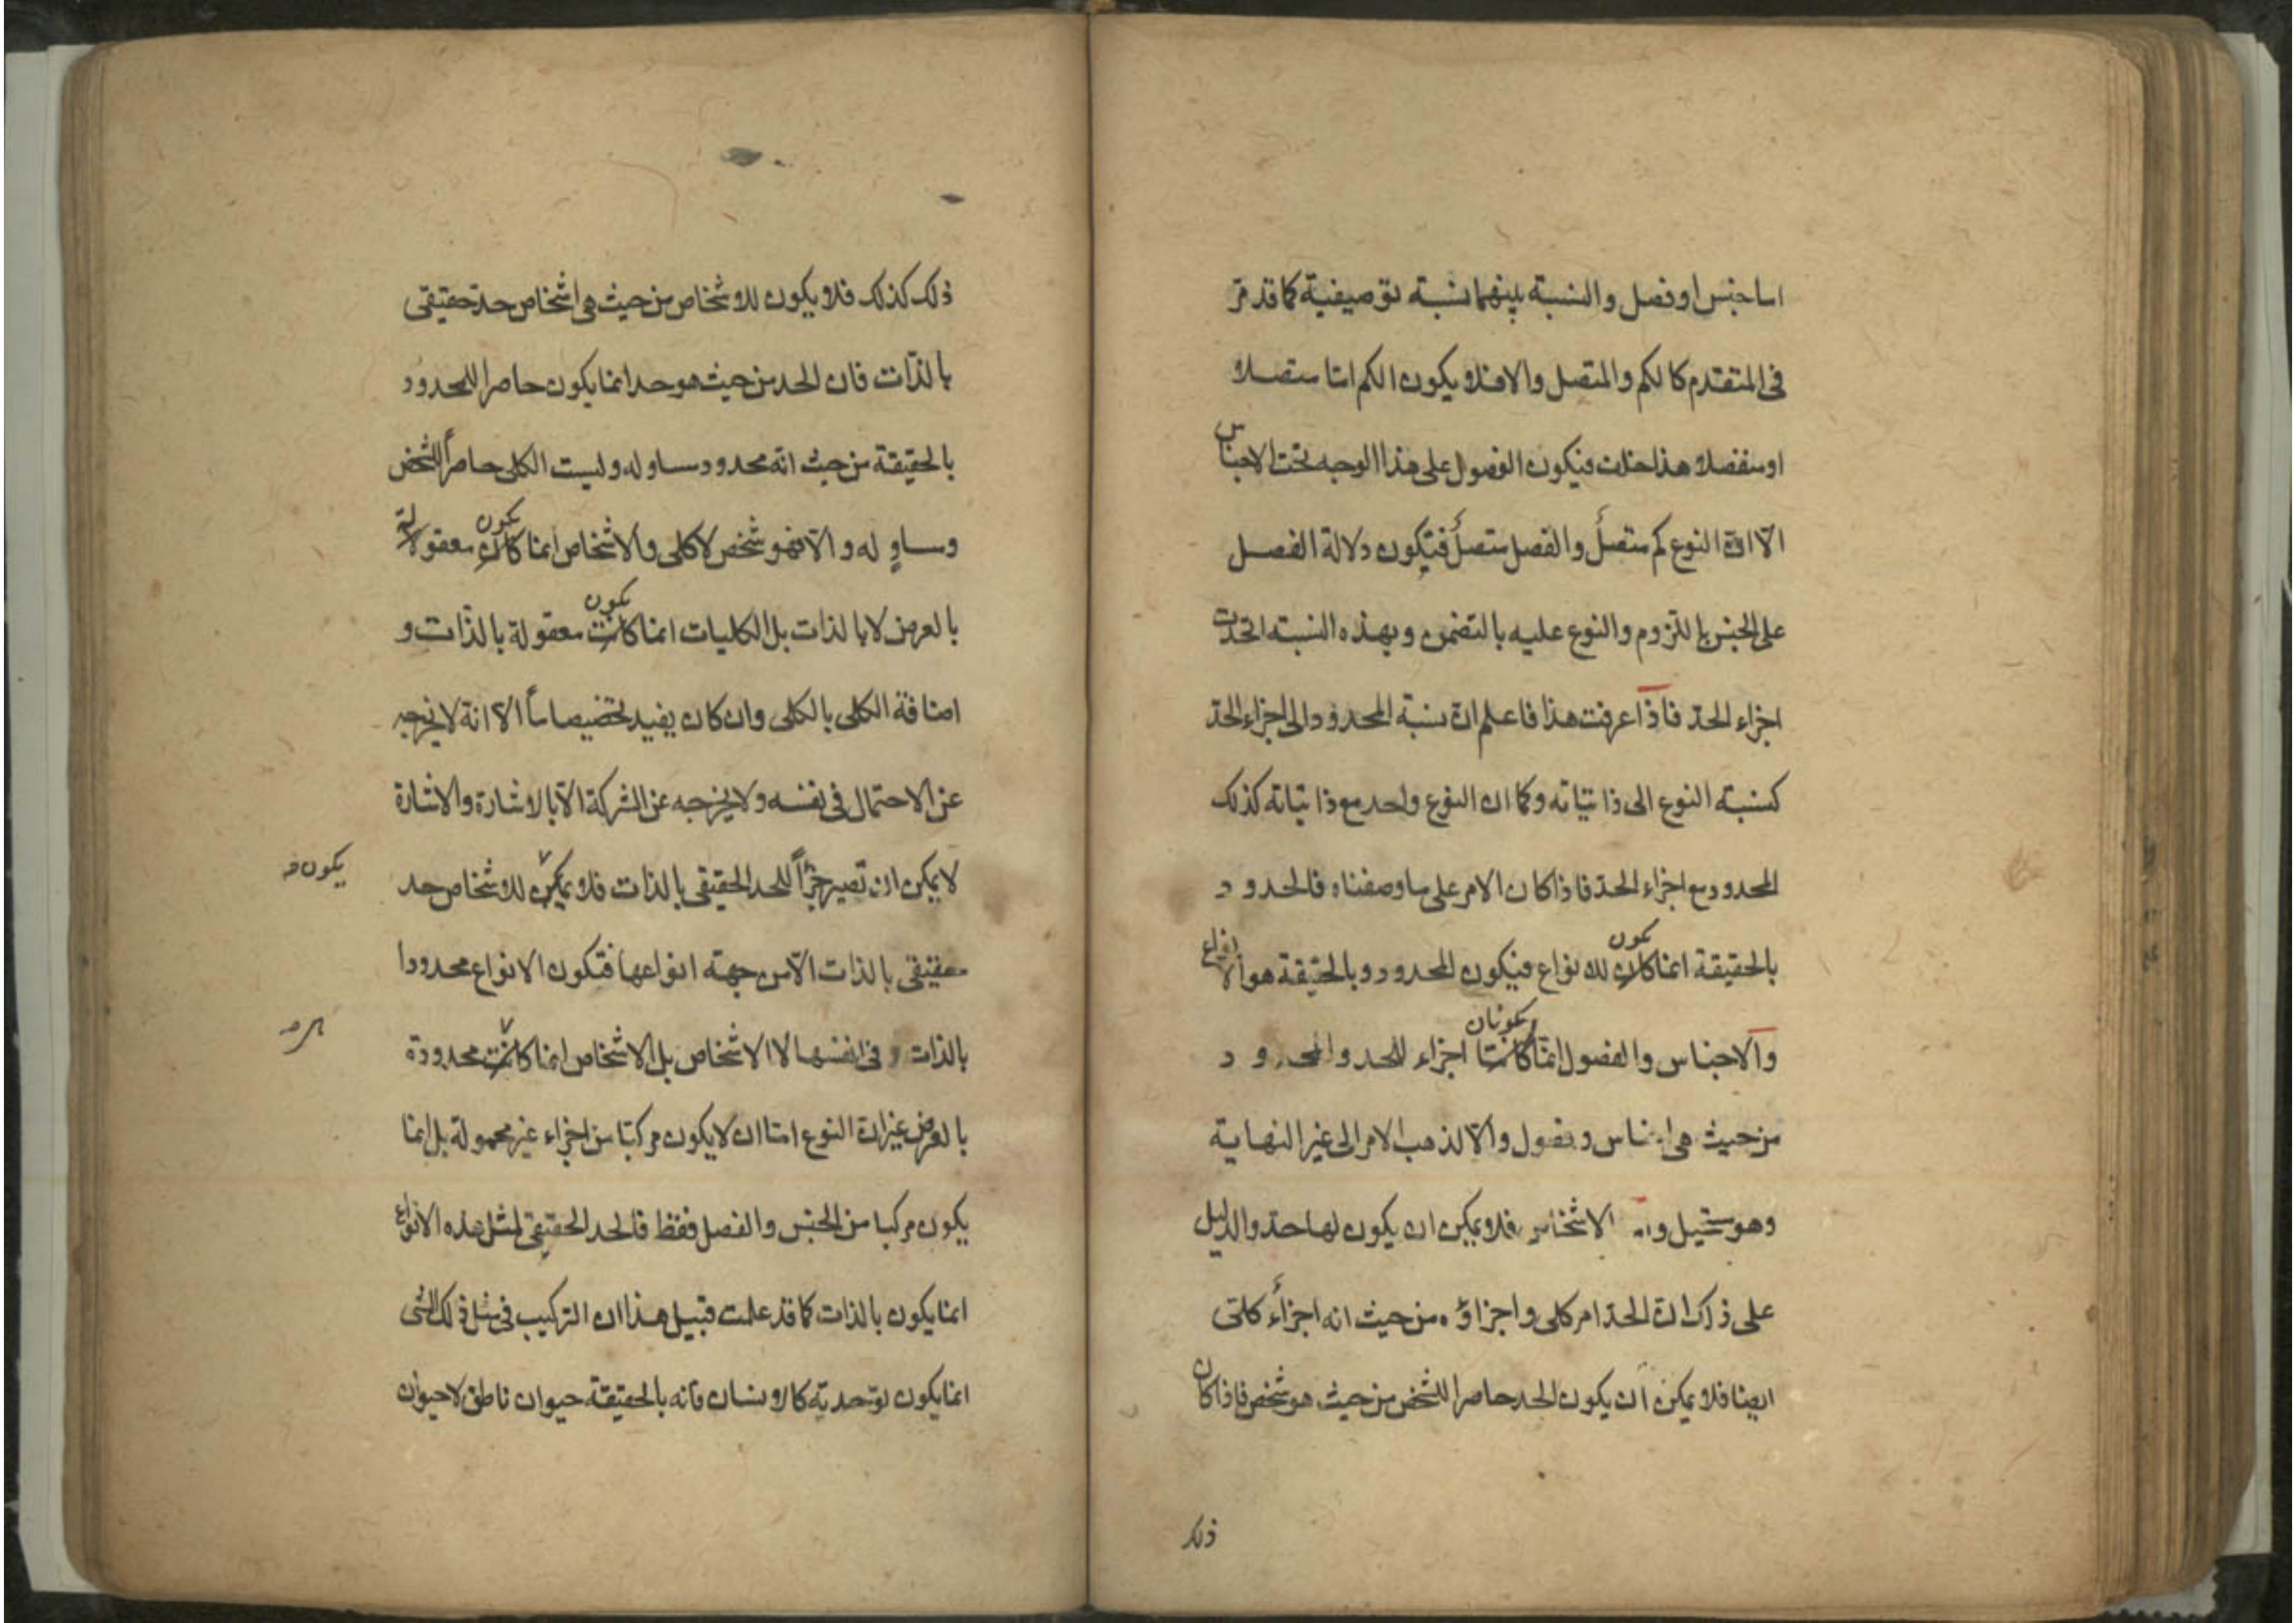 اما جنس او فصل والنسبة بينهما نسبة توصيفية كما قد مرّ
فى المتقدم كالكم والمتصل والا فلا يكون الكم امّا متصلا
او منفصلا هذا خلف فيكون الفصول على هذا الوجه تحت الاجناس
الّا انّ النوع كم متصلٌ والفصل متصلٌ فيكون دلالة الفصل
على الجنس باللزوم والنوع عليه بالتضمن وبهذه النسبة اتحدت
اجزاء الحدّ فاذا عرفت هذا فاعلم انّ نسبة المحدود الى اجزاء الحدّ
كنسبة النوع الى ذاتياته وكما ان النوع واحد مع ذاتياته كذلك
المحدود مع اجزاء الحدّ فاذا كان الامر على ما وصفناه فالحدود
يكون
بالحقيقة انما كان للانواع فيكون المحدود وبالحقيقة هو الانواع
يكونان
والاجناس والفصول انمّا كانتا اجزاء للحد والمحدود
من حيث هى اجناس وفصول والّا لذهب الامر الى غير النهاية
وهو مستحيل واما الاشخاص فلا يمكن ان يكون لها حدّ والدليل
على ذلك انّ الحدّ امر كلى واجزاؤه من حيث انه اجزاءٌ كلّى
ايضا فلا يمكن ان يكون الحد حاصرا للشخص من حيث هو شخص فاذا كان
ذلك
ذلك كذلك فلا يكون للاشخاص من حيث هى اشخاص حدّ حقيقى
بالذّات فان الحد من حيث هو حد انما يكون حاصرا للمحدود
بالحقيقة من حيث انّه محدود مساو له وليست الكلى حاصراً للشخص
يكون
ومساوٍ له والّا فهو شخص لا كلى والاشخاص انما كان معقولة
يكون
بالعرض لا بالذات بل الكليات انما كانت معقولة بالذّات و
اضافة الكلى بالكلى وان كان يفيد تخصيصا ماً الّا انّه لا يخرجه
عن الاحتمال فى نفسه ولا يخرجه عن الشركة الّا بالاشارة والاشارة
لا يمكن ان تصير جزءاً للحد الحقيقى بالذات فلا يمكن للاشخاص حد
يكون
حقيقى بالذات الّا من جهة انواعها فتكون الانواع محدودا
بالذات و فى انفسها لا الاشخاص بل الاشخاص انما كانت محدودة
بالعرض غير انّ النوع امّا ان لا يكون مركبّا من اجزاء غير محمولة بل انما
يكون مركبا من الجنس والفصل فقط فالحد الحقيقى لمثل هذه الانواع
انما يكون بالذات كما قد علمت قبيل هذا ان التركيب فى مثل ذلك الشى
انما يكون توحديّه كالانسان فانه بالحقيقة حيوان ناطق لا حيوان